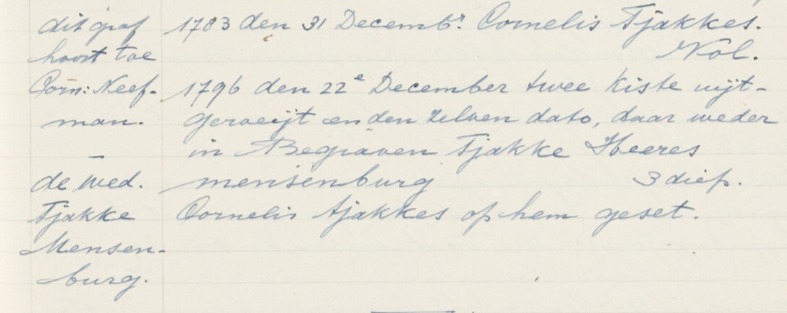 dit graf
hoort toe
Corn: Neef-
man.
–
de wed.
Tjakke
Mensen-
burg.
1783 den 31 Decembr. Cornelis Tjakkes.
Nol.
1796 den 22e December twee kiste uijt-
geroeijt en den zelven dato, daar weder
in Begraven Tjakke Heeres
mensenburg 3 diep.
Cornelis tjakkes op hem geset.